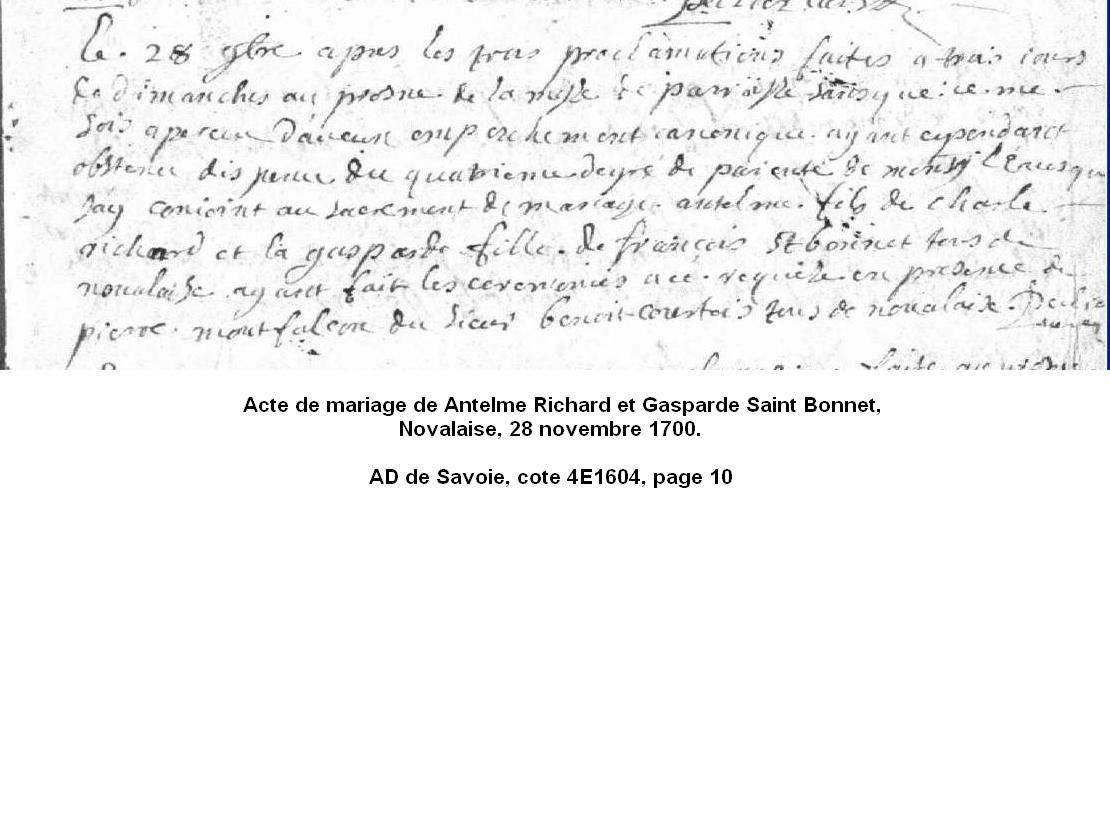 le 28 9bre apres les trois proclamations faites a trois iours
de dimanches au prosne de la messe de parroisse sans que ie me
sois aperceu d'aucun empechement canonique ayant cependant
obstenu dispense du quatrieme degré de parenté de monsg l'Euesque
iay conioint au sacrement de mariage antelme fils de charle
richard et la gasparde fille de francois st bonnet tous de
noualaise ayant fait les ceremonies a ce requise en presence de
pierre montfalcon du sieur benoit courtois tous de noualaise
Acte de mariage de Antelme Richard et Gasparde Saint Bonnet,
Novalaise, 28 novembre 1700.
AD de Savoie, cote 4E1604, page 10